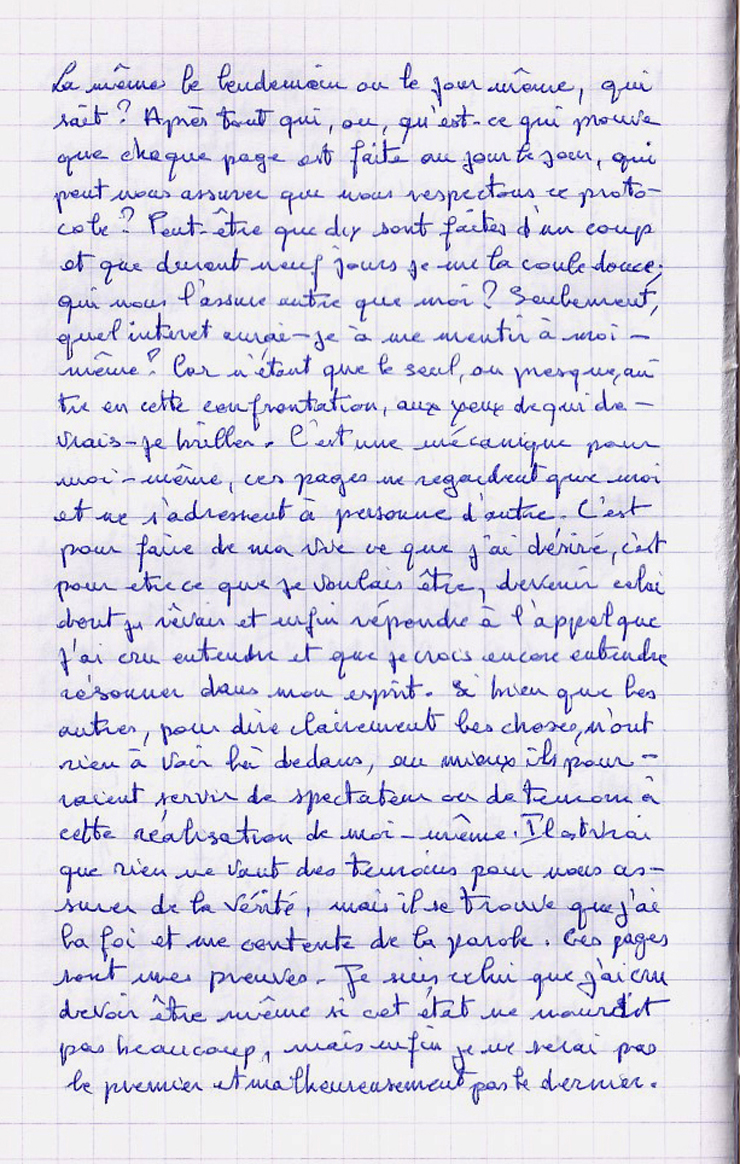 La même le lendemain ou le jour même, qui
sait ? Après tout qui, ou, qu'est-ce qui prouve
que chaque page est faite au jour le jour, qui
peut nous assurer que nous respectons ce proto-
cole ? Peut-être que dix sont faites d'un coup
et que durant neuf jours je me la coule douce,
qui nous l'assure autre que moi ? Seulement,
quel interet aurai-je à me mentir à moi-
même ? Car n'étant que le seul, ou presque, au
tre en cette confrontation, aux yeux de qui de-
vrais-je briller. C'est une mécanique pour
moi-même, ces pages ne regardent que moi
et ne s'adressent à personne d'autre. C'est
pour faire de ma vie ce que j'ai désiré, c'est
pour etre ce que je voulais être, devenir celui
dont je rêvais et enfin répondre à l'appel que
j'ai cru entendre et que je crois encore entendre
résonner dans mon esprit. Si bien que les
autres, pour dire clairement les choses, n'ont
rien à voir là dedans, au mieux ils pour-
raient servir de spectateur ou de temoin à
cette réalisation de moi-même. Il est vrai
que rien ne vaut des temoins pour nous as-
surer de la vérité, mais il se trouve que j'ai
la foi et me contente de la parole. Ces pages
sont mes preuves. Je suis celui que j'ai cru
devoir être même si cet état ne nourrit
pas beaucoup, mais enfin je ne serai pas
le premier et malheureusement pas le dernier.